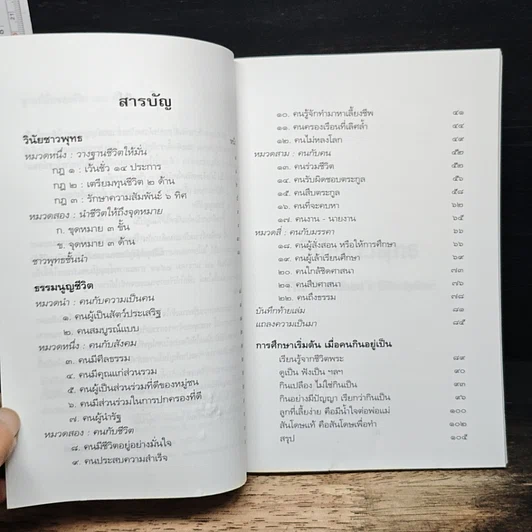 สารบัญ
วินัยชาวพุทธ
หมวดหนึ่ง : วางฐานชีวิตให้มั่น
กฎ ๑ : เว้นชั่ว ๑๔ ประการ
กฎ ๒ : เตรียมทุนชีวิต ๒ ด้าน
กฎ ๓ : รักษาความสัมพันธ์ ๖ ทิศ
หมวดสอง : นำชีวิตให้ถึงจุดหมาย
ก. จุดหมาย ๓ ขั้น
ข. จุดหมาย ๓ ด้าน
ชาวพุทธชั้นนำ
ธรรมนูญชีวิต
หมวดนำ : คนกับความเป็นคน
๑. คนผู้เป็นสัตว์ประเสริฐ
๒. คนสมบูรณ์แบบ
หมวดหนึ่ง : คนกับสังคม
๓. คนมีศีลธรรม
๔. คนมีคุณแก่ส่วนรวม
๕. คนผู้เป็นส่วนร่วมที่ดีของหมู่ชน
๖. คนมีส่วนร่วมในการปกครองที่ดี
๗. คนผู้นำรัฐ
หมวดสอง : คนกับชีวิต
๘. คนมีชีวิตอยู่อย่างมั่นใจ
๙. คนประสบความสำเร็จ
๑๐. คนรู้จักทำมาหาเลี้ยงชีพ ๔๑
๑๑. คนครองเรือนที่เลิศล้ำ ๔๔
๑๒. คนไม่หลงโลก ๔๙
หมวดสาม : คนกับคน ๕๒
๑๓. คนร่วมชีวิต ๕๒
๑๔. คนรับผิดชอบตระกูล ๕๕
๑๕. คนสืบตระกูล ๕๘
๑๖. คนที่จะคบหา ๖๒
๑๗. คนงาน - นายงาน ๖๕
หมวดสี่ : คนกับมรรคา ๖๖
๑๘. คนผู้สั่งสอน หรือให้การศึกษา ๖๖
๑๙. คนผู้เล่าเรียนศึกษา ๗๑
๒๐. คนใกล้ชิดศาสนา ๗๓
๒๑. คนสืบศาสนา ๗๖
๒๒. คนถึงธรรม ๗๘
บันทึกท้ายเล่ม ๘๑
แถลงความเป็นมา ๘๕
การศึกษาเริ่มต้น เมื่อคนกินอยู่เป็น
เรียนรู้จากชีวิตพระ ๘๙
ดูเป็น ฟังเป็น ฯลฯ ๙๐
กินเปลือง ไม่ใช่กินเป็น ๙๓
กินอย่างมีปัญญา เรียกว่ากินเป็น ๙๔
ลูกที่เลี้ยงง่าย คือมีน้ำใจต่อพ่อแม่ ๑๐๐
สันโดษแท้ คือสันโดษเพื่อทำ ๑๐๒
สรุป ๑๐๕